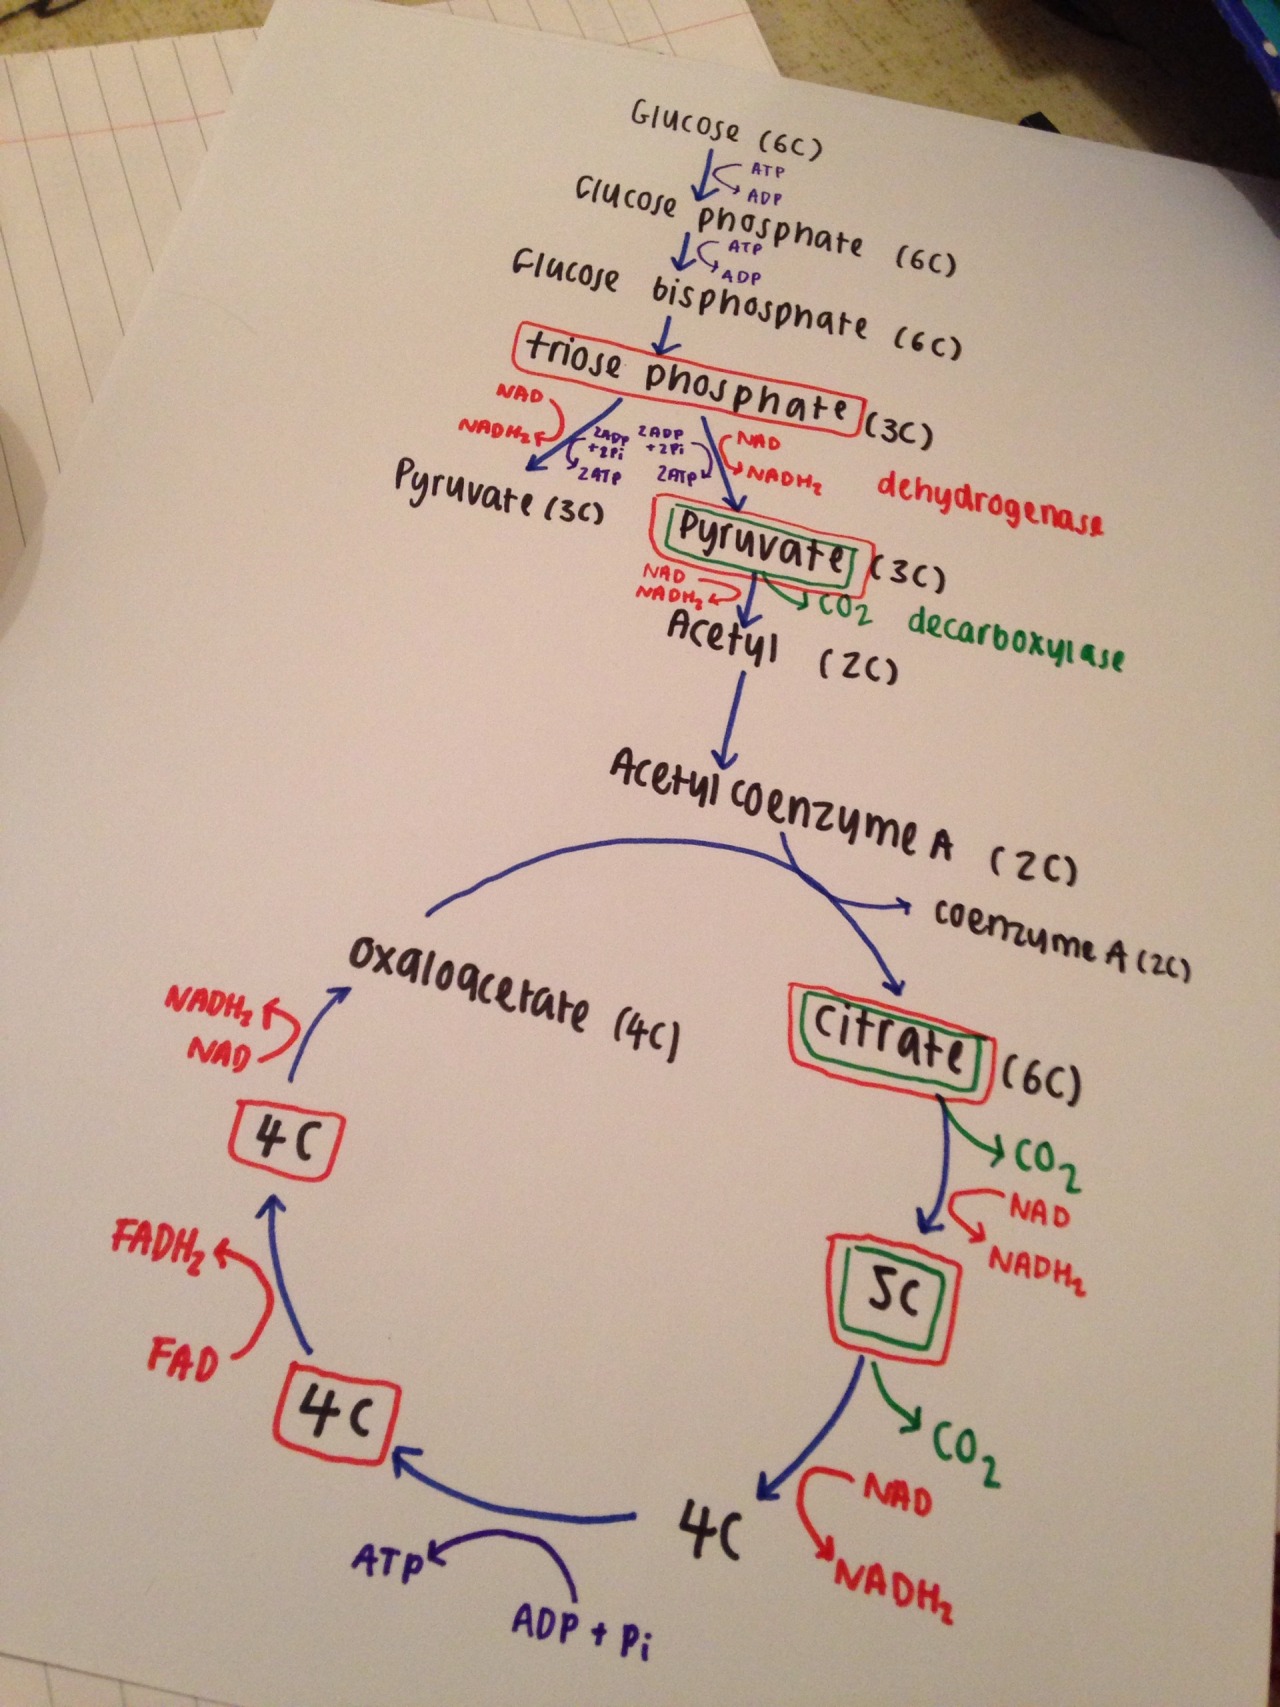 Glucose (6C)
ATP
ADP
Glucose phosphate (6C)
ATP
ADP
Glucose bisphosphate (6C)
triose phosphate (3C)
NAD
NADH₂
2ADP
+2Pi
2ATP
2ADP
+2Pi
2ATP
NAD
NADH₂
dehydrogenase
Pyruvate (3C)
Pyruvate (3C)
NAD
NADH₂
CO₂ decarboxylase
Acetyl (2C)
Acetyl coenzyme A (2C)
coenzyme A (2C)
oxaloacetate (4C)
citrate (6C)
NADH₂
NAD
CO₂
NAD
NADH₂
4C
5C
FADH₂
FAD
4C
CO₂
NAD
NADH₂
4C
ATP
ADP + Pi